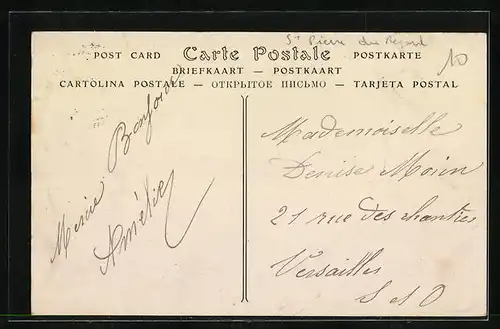 St Pierre du Regard
10
POST CARD Carte Postale POSTKARTE
BRIEFKAART — POSTKAART
CARTOLINA POSTALE — ОТКРЫТОЕ ПИСЬМО — TARJETA POSTAL
Bonjour
Amélie
Mademoiselle
Denise Morin
21 rue des chantiers
Versailles
S et O